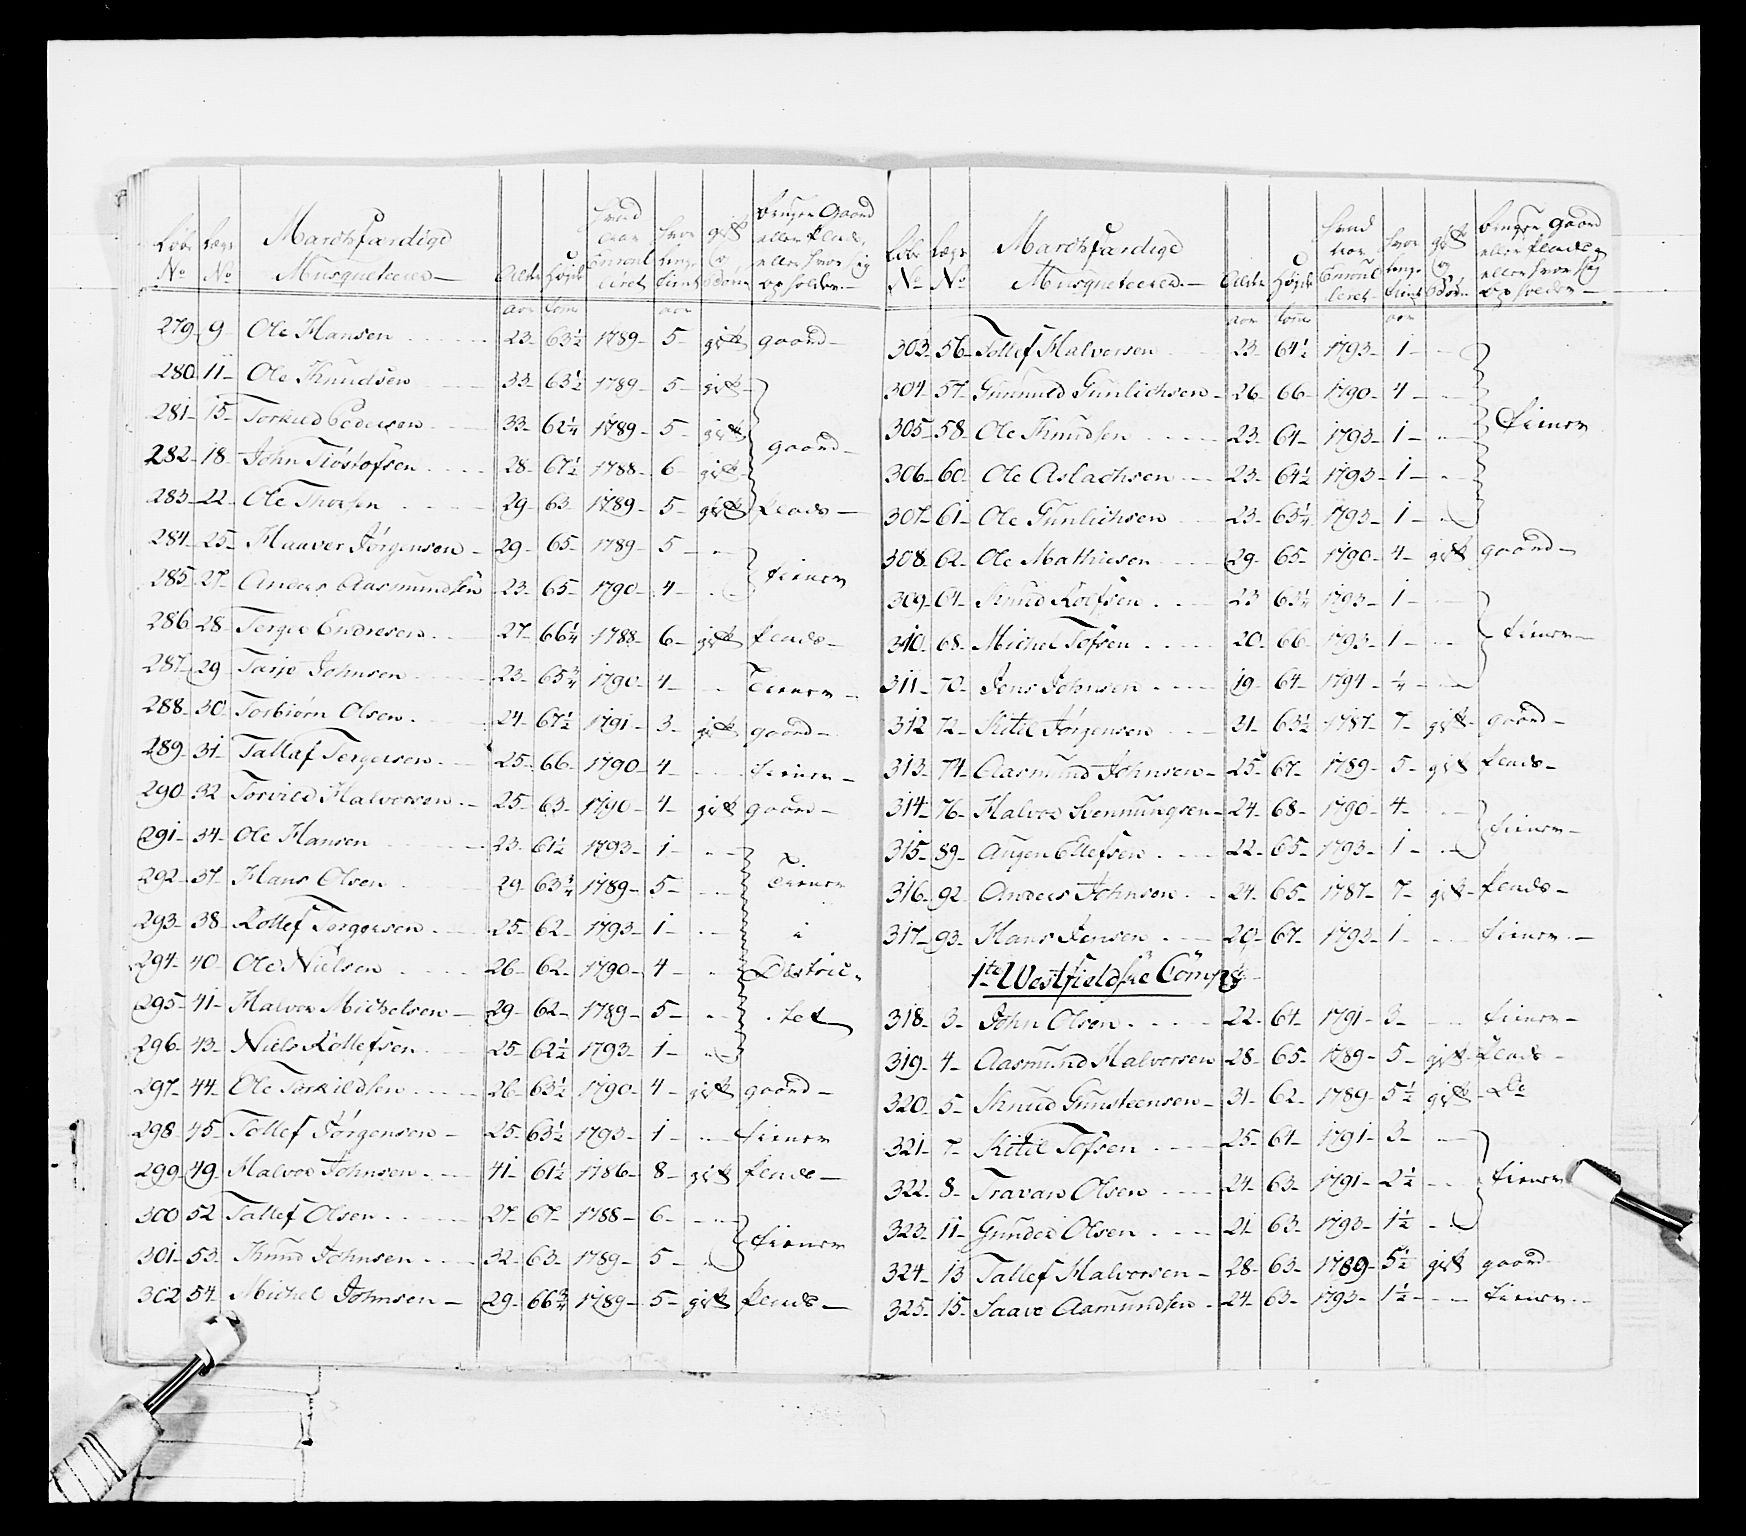 Løbe Lægs Marchfærdige Alder Højde hvad Aar Enroulleret hvor længe tient gift og Børn bruger Gaard eller Plads, eller hvor sig opholder
No No Musqueteerer
aar tomr aar
279 9 Ole Hansen 23 63½ 1789 5 gift gaard
280 11 Ole Knudsen 33 63½ 1789 5 gift
281 15 Torkild Pedersen 33 62¼ 1789 5 gift gaard
282 18 John Tiøstofsen 28 67½ 1788 6 gift
283 22 Ole Thorsen 29 63 1789 5 gift plads
284 25 Haaver Jørgensen 29 65 1789 5
285 27 Anders Aasmundsen 23 65 1790 4 tiener
286 28 Tergie Endresen 27 66¼ 1788 6 gift plads
287 29 Tarje Johnsen 23 65¾ 1790 4 Tiener
288 30 Torbiørn Olsen 24 67½ 1791 3 gift gaard
289 31 Tallaf Tergersen 25 66 1790 4 tiener
290 32 Torvild Halvorsen 25 63 1790 4 gift gaard
291 34 Ole Hansen 23 61½ 1793 1
292 37 Hans Olsen 29 63¾ 1789 5 Tiener
293 38 Rollef Torgersen 25 62 1793 1 i
294 40 Ole Nielsen 26 62 1790 4 District
295 41 Halvor Michelsen 29 62 1789 5 tet
296 43 Niels Rollefsen 25 62½ 1793 1
297 44 Ole Torkildsen 26 63½ 1790 4 gift gaard
298 45 Tollef Jørgensen 25 63½ 1793 1 tiener
299 49 Halvor Johnsen 41 61½ 1786 8 gift plads
300 52 Tallef Olsen 27 67 1788 6
301 53 Knud Johnsen 32 63 1789 5 tiener
302 54 Michel Johnsen 29 66¾ 1789 5 gift plads
Løbe Lægs Marchfærdige Alder Højde hvad Aar Enroulleret hvor længe tient gift og Børn bruger gaard eller plads, eller hvor sig opholder
No No Musqueteerer
aar tomr aar
303 56 Tollef Halvorsen 23 64½ 1793 1
304 57 Gunnuld Gunlichsen 26 66 1790 4
305 58 Ole Knudsen 23 64 1793 1 tiener
306 60 Ole Aslachsen 23 64½ 1793 1
307 61 Ole Gunlichsen 23 63¼ 1793 1
308 62 Ole Mathiesen 29 65 1790 4 gift gaard
309 64 Knud Rolfsen 23 63¼ 1793 1
310 68 Michel Tofsen 20 66 1793 1 tiener
311 70 Jens Johnsen 19 64 1794 ¼
312 72 Kitil Jørgensen 31 63½ 1787 7 gift gaard
313 74 Aasmund Johnsen 25 67 1789 5 gift plads
314 76 Halvor Svennungsen 24 68 1790 4
315 89 Augen Ellefsen 22 65 1793 1 tiener
316 92 Anders Johnsen 24 65 1787 7 gift plads
317 93 Hans Jensen 20 67 1793 1 tiener
1te Westfieldske Comp:
318 3 John Olsen 22 64 1791 3 tiener
319 4 Aasmund Halvorsen 28 65 1789 5 gift Plads
320 5 Knud Gunsteensen 31 62 1789 5½ gift Do
321 7 Kitil Tofsen 25 61 1791 3
322 8 Travan Olsen 24 63 1791 2½ tiener
323 11 Gunder Olsen 21 63 1793 1½
324 13 Tallef Halvorsen 28 63 1789 5½ gift gaard
325 15 Saave Asmundsen 24 63 1793 1½ tiener